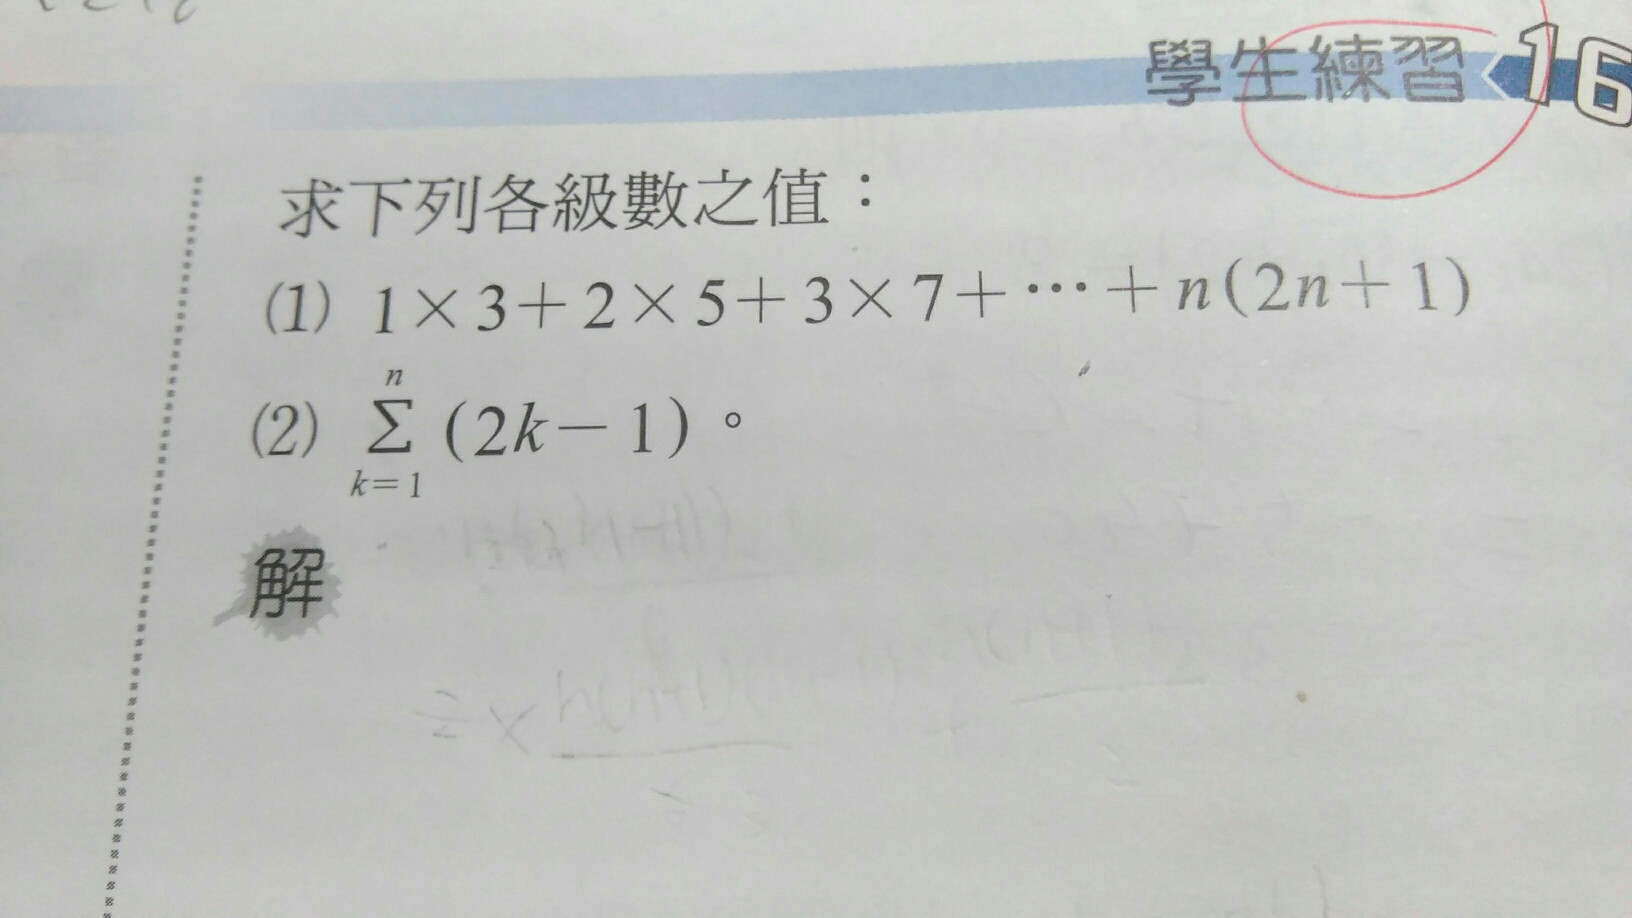 學生練習 16
求下列各級數之值：
(1) 1×3+2×5+3×7+⋯+n(2n+1)
(2) n
Σ (2k−1)。
k=1
解